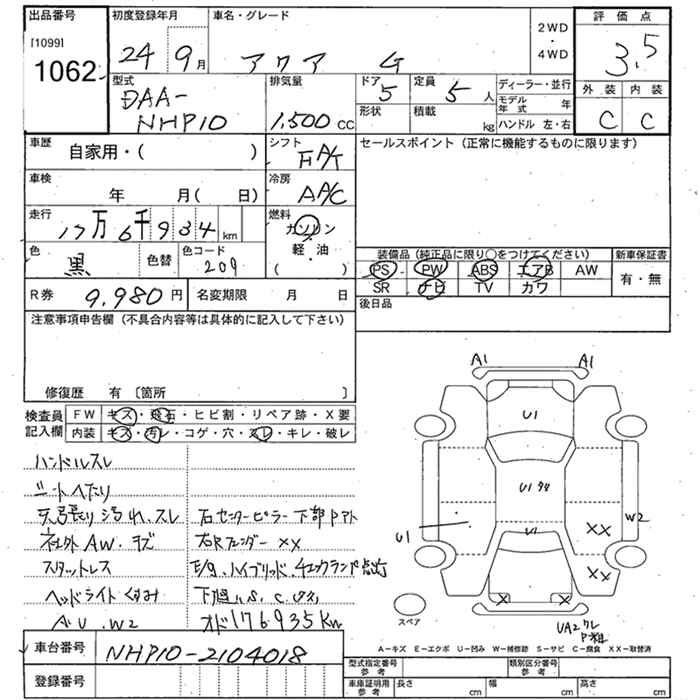 出品番号
[1099]
1062
初度登録年月
24 9月
車名・グレード
アクア G
2WD
・
4WD
評価点
3.5
外装 内装
C C
型式
DAA-
NHP10
排気量
1,500 CC
ドア
5
定員
5 人
形状
積載
kg
ディーラー・並行
モデル年式 年
ハンドル 左・右
車歴
自家用・( )
シフト
FA/T
セールスポイント (正常に機能するものに限ります)
車検
年 月( 日)
冷房
A/C
走行
17万6千934km
燃料
ガソリン
・
軽・油
( )
色
黒
色替
色コード
209
装備品 (純正品に限り○をつけてください)
新車保証書
PS PW ABS エアB AW
SR ナビ TV カワ
有・無
R券 9,980円
名変期限 月 日
後日品
注意事項申告欄 (不具合内容等は具体的に記入して下さい)
修復歴 有 〔箇所 〕
検査員記入欄
FW キズ・飛石・ヒビ割・リペア跡・X要
内装 キズ・汚レ・コゲ・穴・スレ・キレ・破レ
ハンドルスレ
シートへたり
天張り汚れ、スレ
社外AW.キズ
スタットレス
ヘッドライトくすみ
AU.W2
右センターピラー下部Pアト
右Rフェンダー XX
E/g、ハイブリッド、チェックランプ点灯
オド176935Km
A1 A1
U1
U1
U1
U1
W2
XX
XX
X X
UA2ワレ
スペア
A－キズ E－エクボ U－凹み W－補修跡 S－サビ C－腐食 XX－取替済
車台番号 NHP10-2104018
登録番号
型式指定番号 参考
類別区分番号 参考
車庫証明用 参考
長さ cm
幅 cm
高さ cm